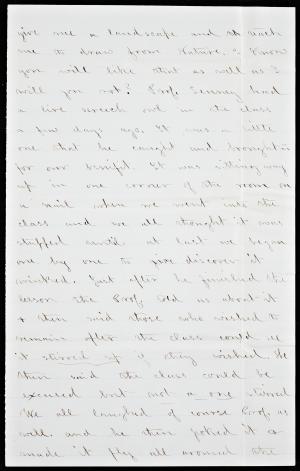 give me a landscape and teach
me to draw from Nature. I know
you will like that as well as I
will you not? Prof. Tenney had
a live screech owl in the class
a few days ago. It was a little
one that he caught and brought in
for our benefit. It was sitting way
up in one corner of the room on
a nail when we went into the
class and we all thought it was
stuffed until at last we began
one by one to discover it
winked. Just after he finished the
lesson the Prof. told us about it
& then said those who wished to
remain after the class could see
it stirred up if they wished. He
then said the class could be
excused but not a one stirred
We all laughed of course Prof. as
well, and he then poked it &
made it fly all around the